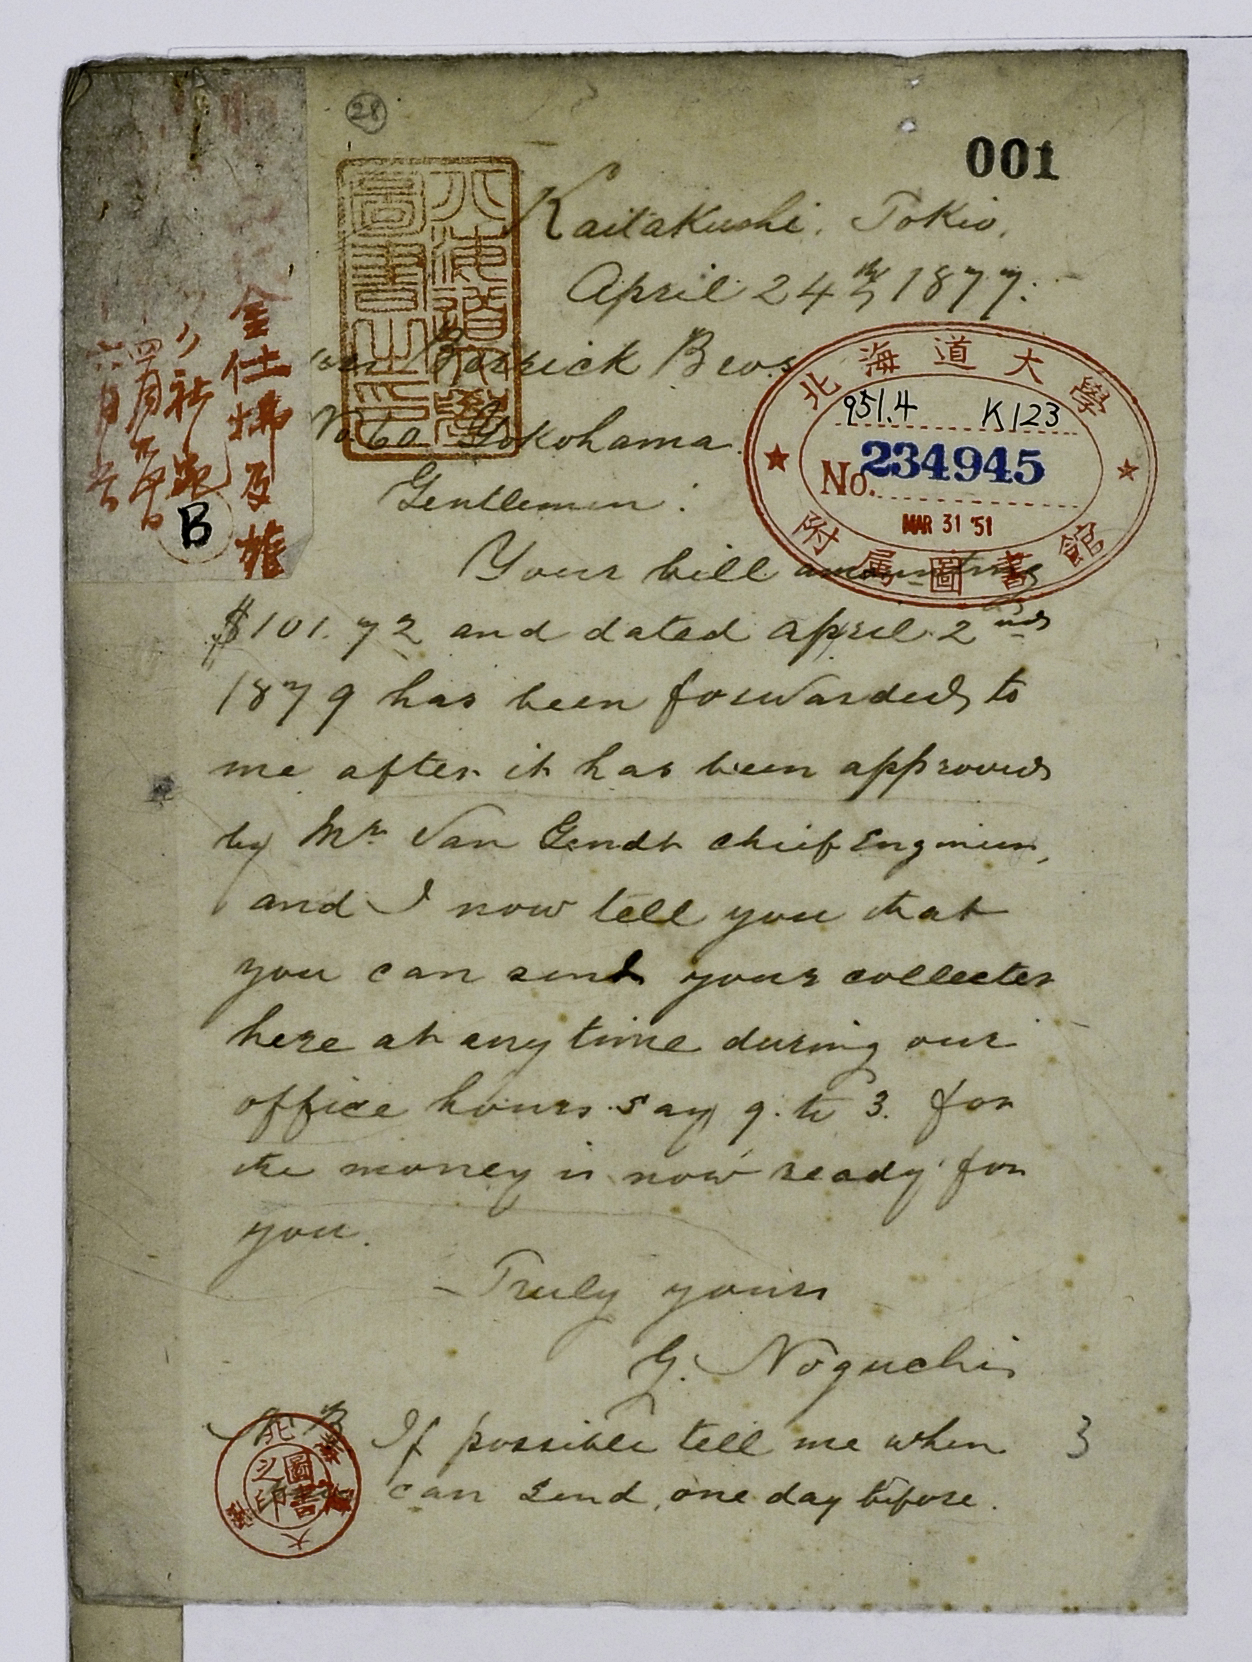 28
001
Kaitakushi. Tokio.
April 24th 1877.
Berrick Bros
No. 60 Yokohama
Gentlemen:
Your bill amounting
$101.72 and dated April 2nd
1879 has been forwarded to
me after it has been approved
by Mr. Van Gendt chief Engineer,
and I now tell you that
you can send your collecter
here at any time during our
office hours say 9. to 3. for
the money is now ready for
you.
Truly yours
G. Noguchi
N B If possible tell me when
can send, one day before.
3
北海道大學
951.4 K123
No. 234945
MAR 31 '51
附属圖書館
北海道大學
圖書之印
北海道大學
圖書之印
B